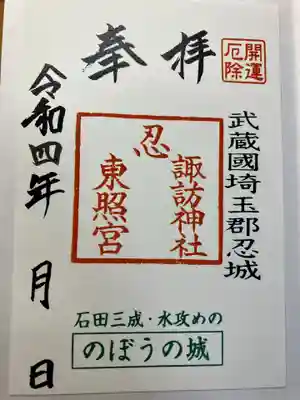 奉拝
開運
厄除
武蔵國埼玉郡忍城
忍
諏訪神社
東照宮
令和四年 月 日
石田三成・水攻めの
のぼうの城